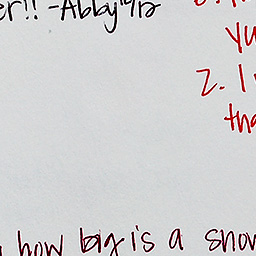 er!! -Abby '92
yu
2. I
tha
how big is a snow